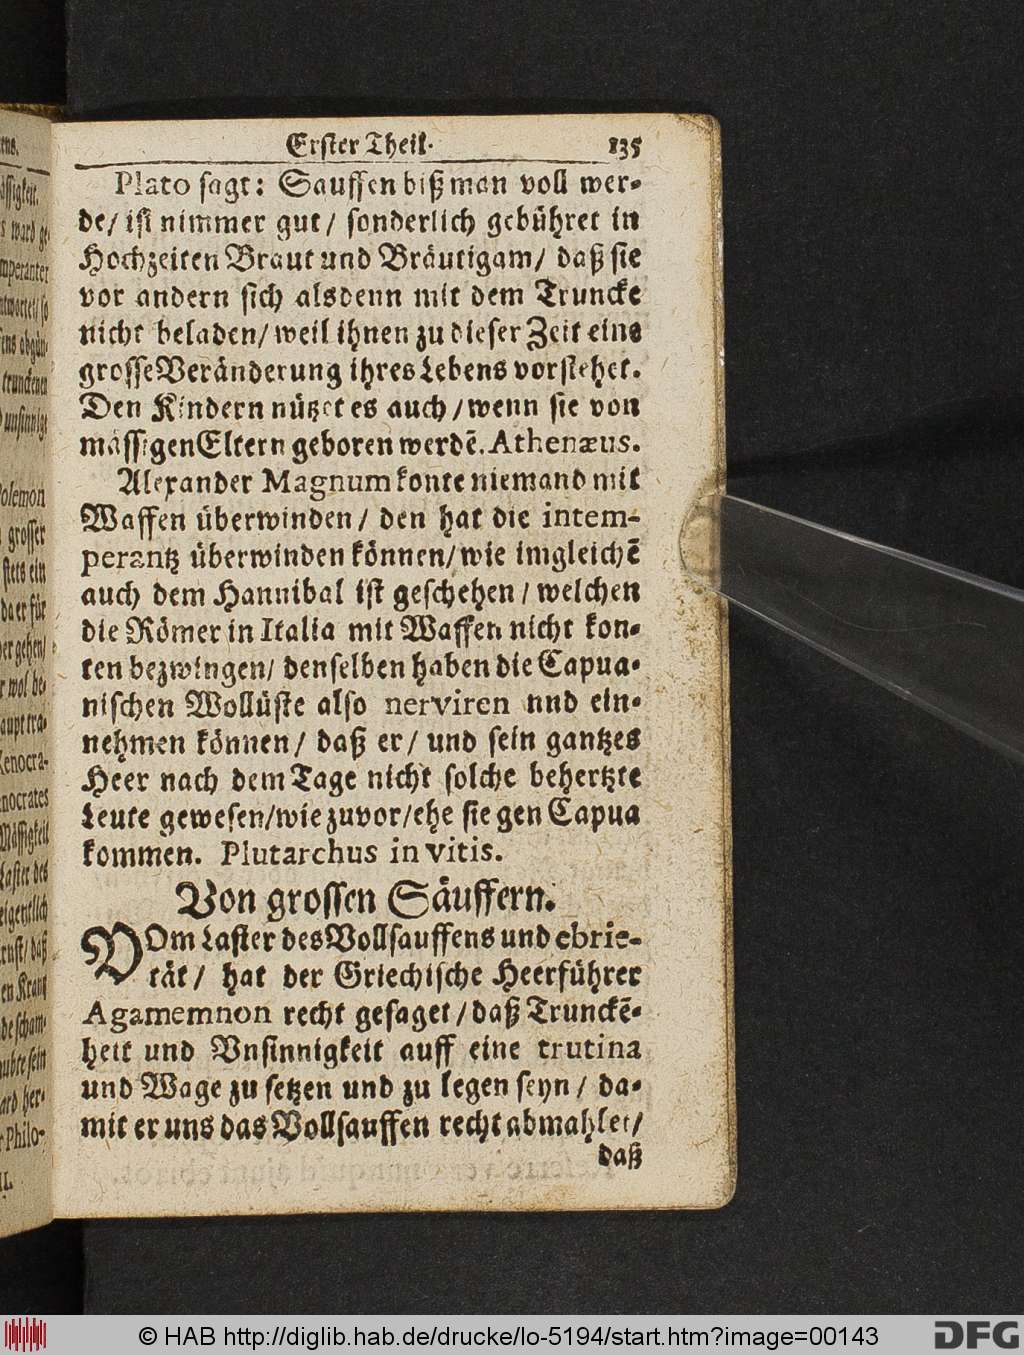 Erster Theil. 135
Plato sagt: Sauffen biß man voll wer-
de/ ist nimmer gut/ sonderlich gebühret in
Hochzeiten Braut und Bräutigam/ daß sie
vor andern sich alsdenn mit dem Truncke
nicht beladen/ weil ihnen zu dieser Zeit eine
grosse Veränderung ihres Lebens vorstehet.
Den Kindern nützet es auch/ wenn sie von
mässigen Eltern geboren werdē. Athenæus.
Alexander Magnum konte niemand mit
Waffen überwinden/ den hat die intem-
perantz überwinden können/ wie imgleichē
auch dem Hannibal ist geschehen/ welchen
die Römer in Italia mit Waffen nicht kon-
ten bezwingen/ denselben haben die Capua-
nischen Wollüste also nerviren nnd ein-
nehmen können/ daß er/ und sein gantzes
Heer nach dem Tage nicht solche behertzte
Leute gewesen/ wie zuvor/ ehe sie gen Capua
kommen. Plutarchus in vitis.
Von grossen Säuffern.
VOm Laster des Vollsauffens und ebrie-
tät/ hat der Griechische Heerführer
Agamemnon recht gesaget/ daß Trunckē-
heit und Vnsinnigkeit auff eine trutina
und Wage zu setzen und zu legen seyn/ da-
mit er uns das Vollsauffen recht abmahlet/
daß
© HAB http://diglib.hab.de/drucke/lo-5194/start.htm?image=00143
DFG